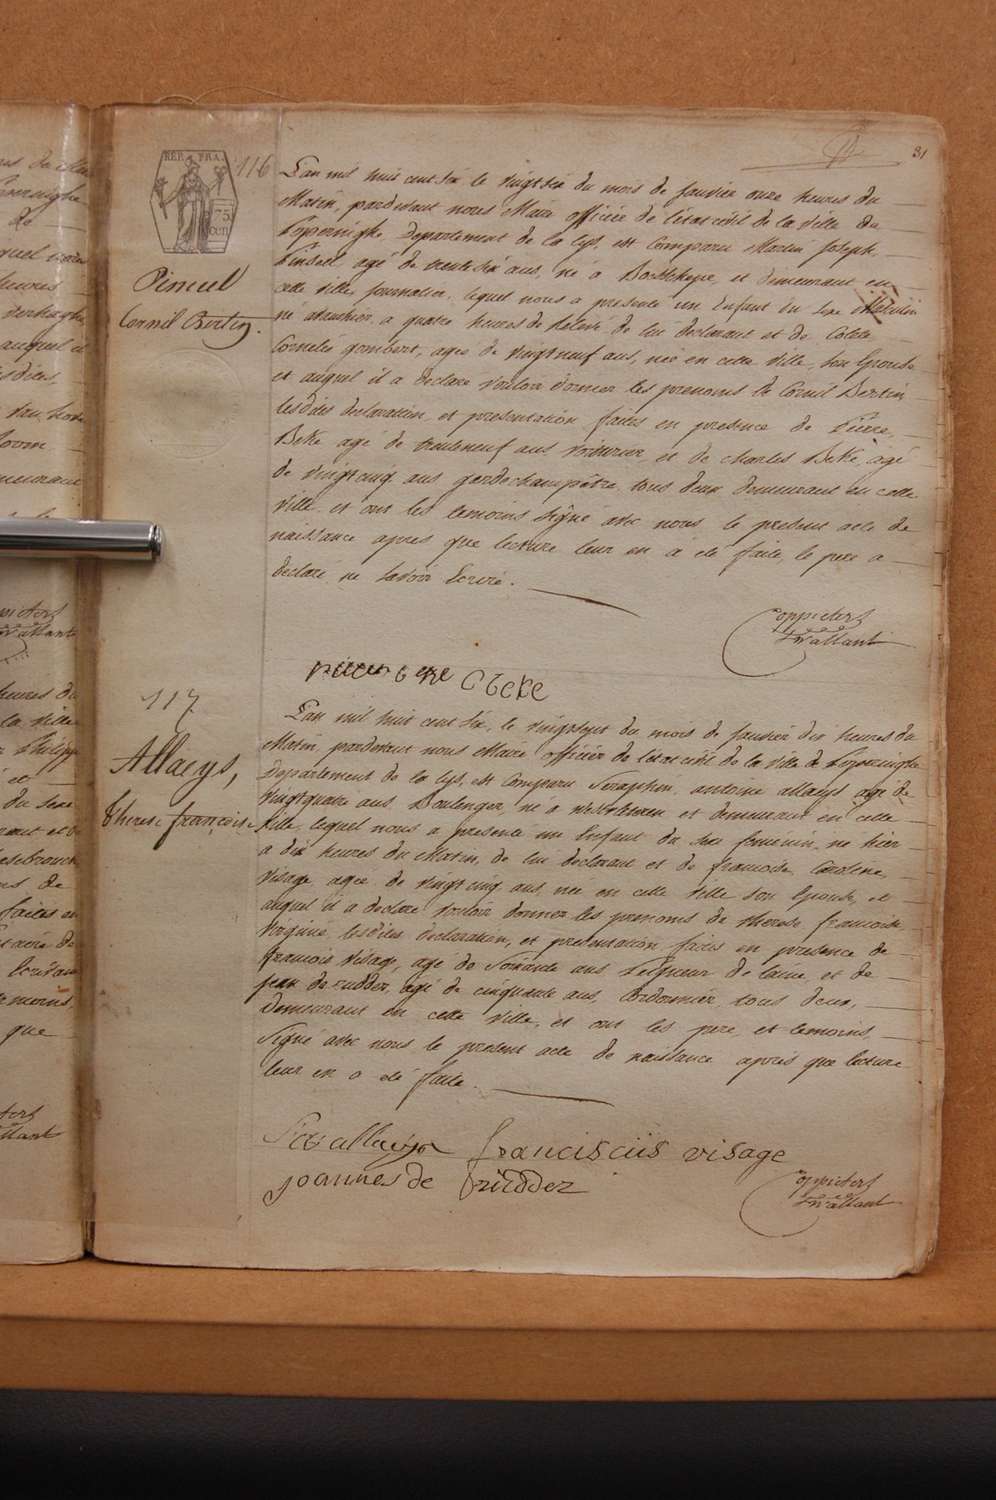 31
REP. FRA.
75 CEN
116
Pinseel
Cornil Bertin.
L'an mil huit cent six le vingt six du mois de Janvier onze heures du
Matin, pardevant nous Maire officier de l'état civil de la Ville de
Poperinghe, Departement de la Lys, est Comparu Martin Joseph,
Pinseel agé de trente six ans, né a et demeurant en
cette Ville, Journalier, lequel nous a presenté un Enfant du sexe Masculin
né avanthier a quatre heures de relevé de lui declarant et de Colete
Cornelie gombert, agée de vingtneuf ans, née en cette Ville, son Epouse
et auquel il a declaré vouloir donner les prenoms de Cornil Bertin
lesdites declaration et presentation faites en presence de Pierre,
Beke agé de trenteneuf ans voiturier et de Charles Beke, agé
de vingtcinq ans gardechampêtre, tous deux demeurans en cette
Ville, et ont les temoins signé avec nous le present acte de
naissance apres que lecture leur en a eté faite, le pere a
declaré ne savoir Ecrire.
Coppieters
t'Wallant
pieter beke C beke
117
Allaeys,
Therese françoise
L'an mil huit cent six, le vingtsept du mois de Janvier dix heures du
Matin, pardevant nous Maire officier de l'état civil de la Ville de Poperinghe
Departement de la Lys, est Comparu Seraphin, antoine allaeys agé de
vingtquatre ans Boulenger, né a et demeurant en cette
Ville, lequel nous a presenté un Enfant du sexe feminin, né hier
a dix heures du Matin, de lui declarant et de francoise, Caroline,
Visage, agée de vingtcinq ans, née en cette Ville son Epouse, et
auquel il a declaré vouloir donner les prenoms de therese francoise,
Virginie, lesdites declaration, et presentation faites en presence de
francois Visage, agé de Soixante ans de laine, et de
jean de rudder, agé de cinquante ans, Cordonnier tous deux,
Demeurant en cette Ville, et ont les pere, et temoins,
Signé avec nous le present acte de naissance aprés que lecture
leur en a eté faite.
allaeys franciscus visage
joannes de rudder
Coppieters
t'Wallant